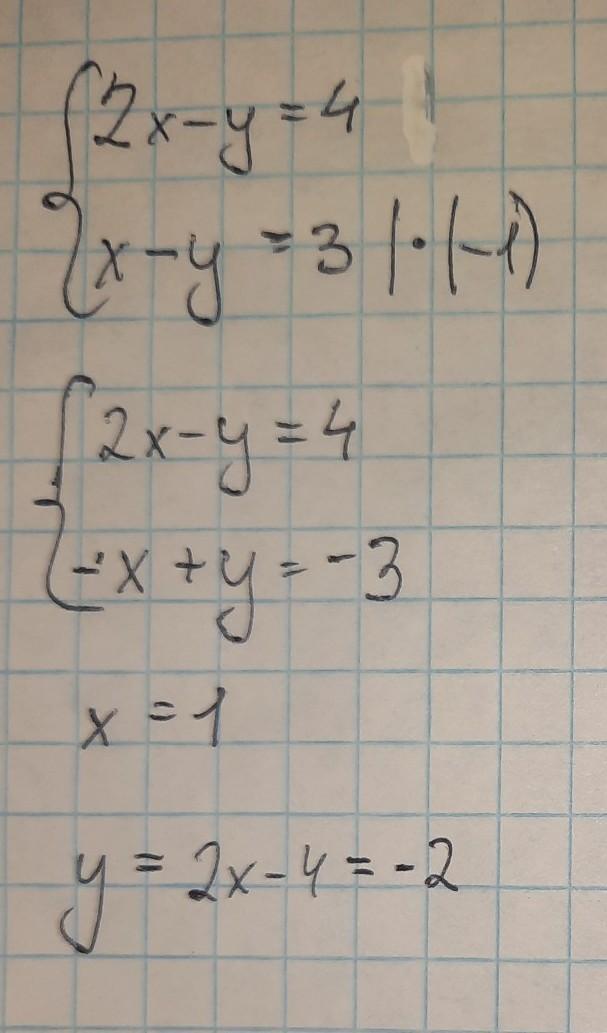 2x-y=4
x-y=3 |·(-1)
2x-y=4
-x+y=-3
x=1
y=2x-4=-2